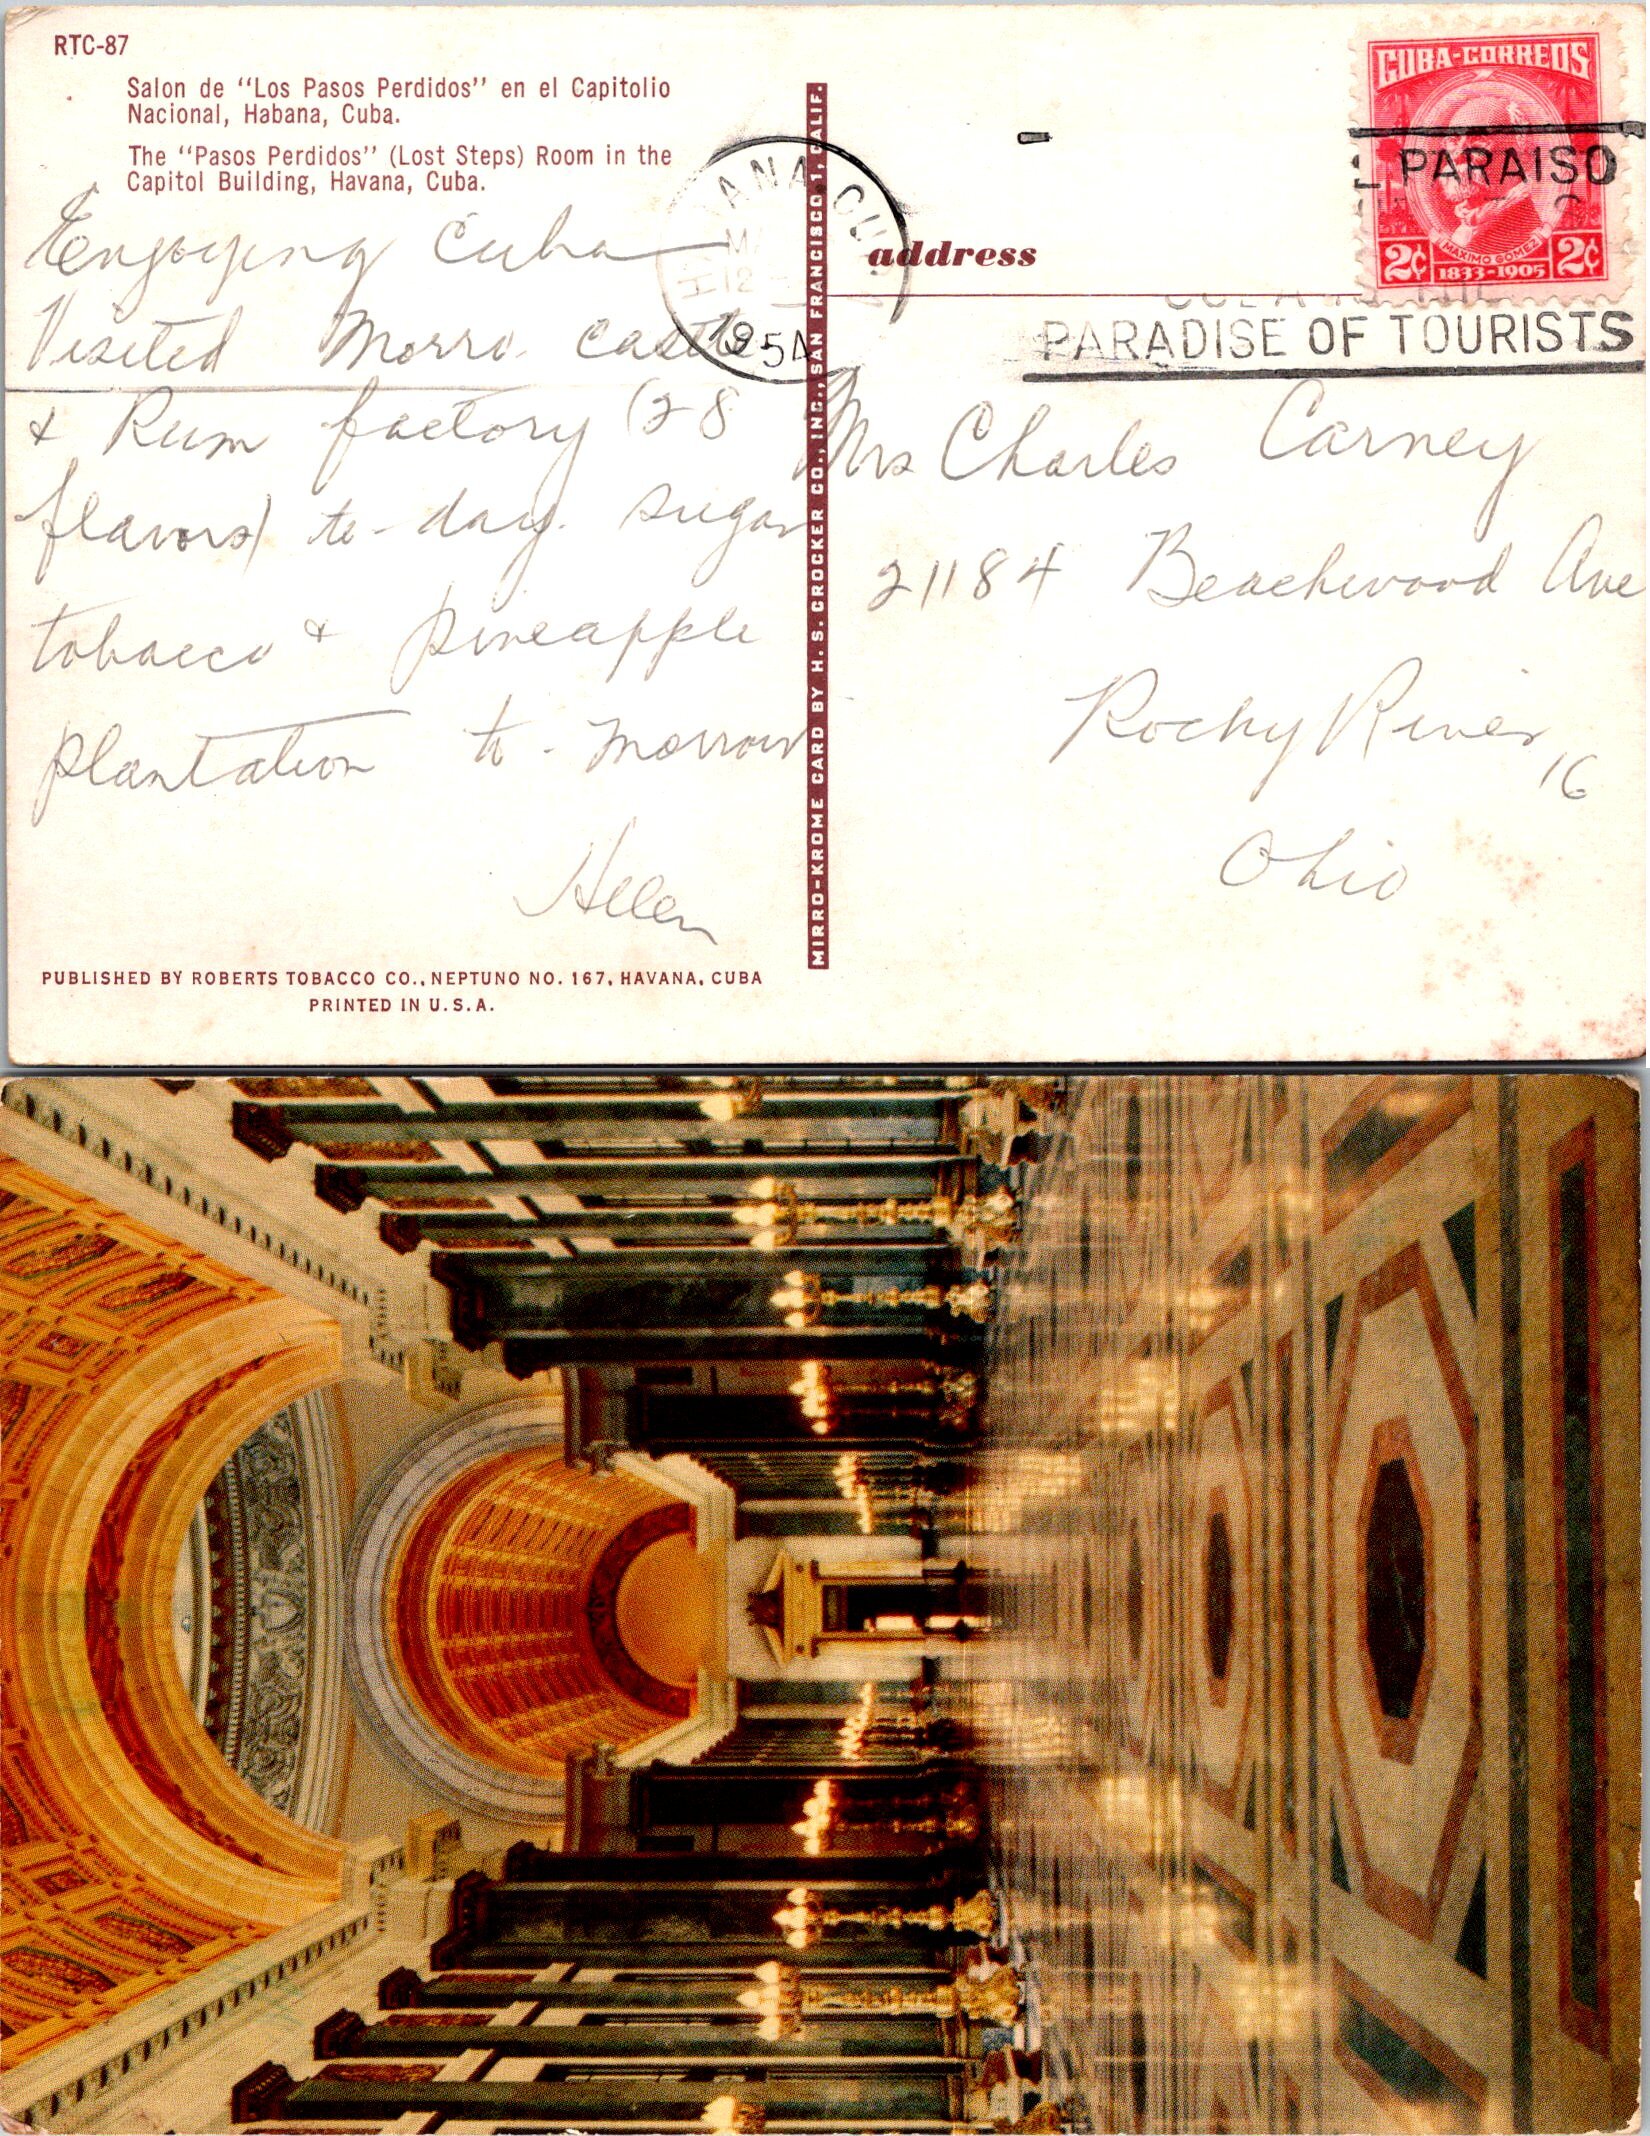 RTC-87
Salon de "Los Pasos Perdidos" en el Capitolio
Nacional, Habana, Cuba.
The "Pasos Perdidos" (Lost Steps) Room in the
Capitol Building, Havana, Cuba.
Enjoying Cuba
Visited Morro Castle
& Rum factory (28
flavors) to-day. Sugar
tobacco & pineapple
plantation to-morrow
Helen
PUBLISHED BY ROBERTS TOBACCO CO., NEPTUNO NO. 167, HAVANA, CUBA
PRINTED IN U.S.A.
MIRRO-KROME CARD BY H. S. CROCKER CO., INC., SAN FRANCISCO 1, CALIF.
1954
CUBA-CORREOS
PARAISO
MAXIMO GOMEZ
2¢ 1833-1905 2¢
PARADISE OF TOURISTS
address
Mrs Charles Carney
21184 Beachwood Ave
Rocky River 16
Ohio